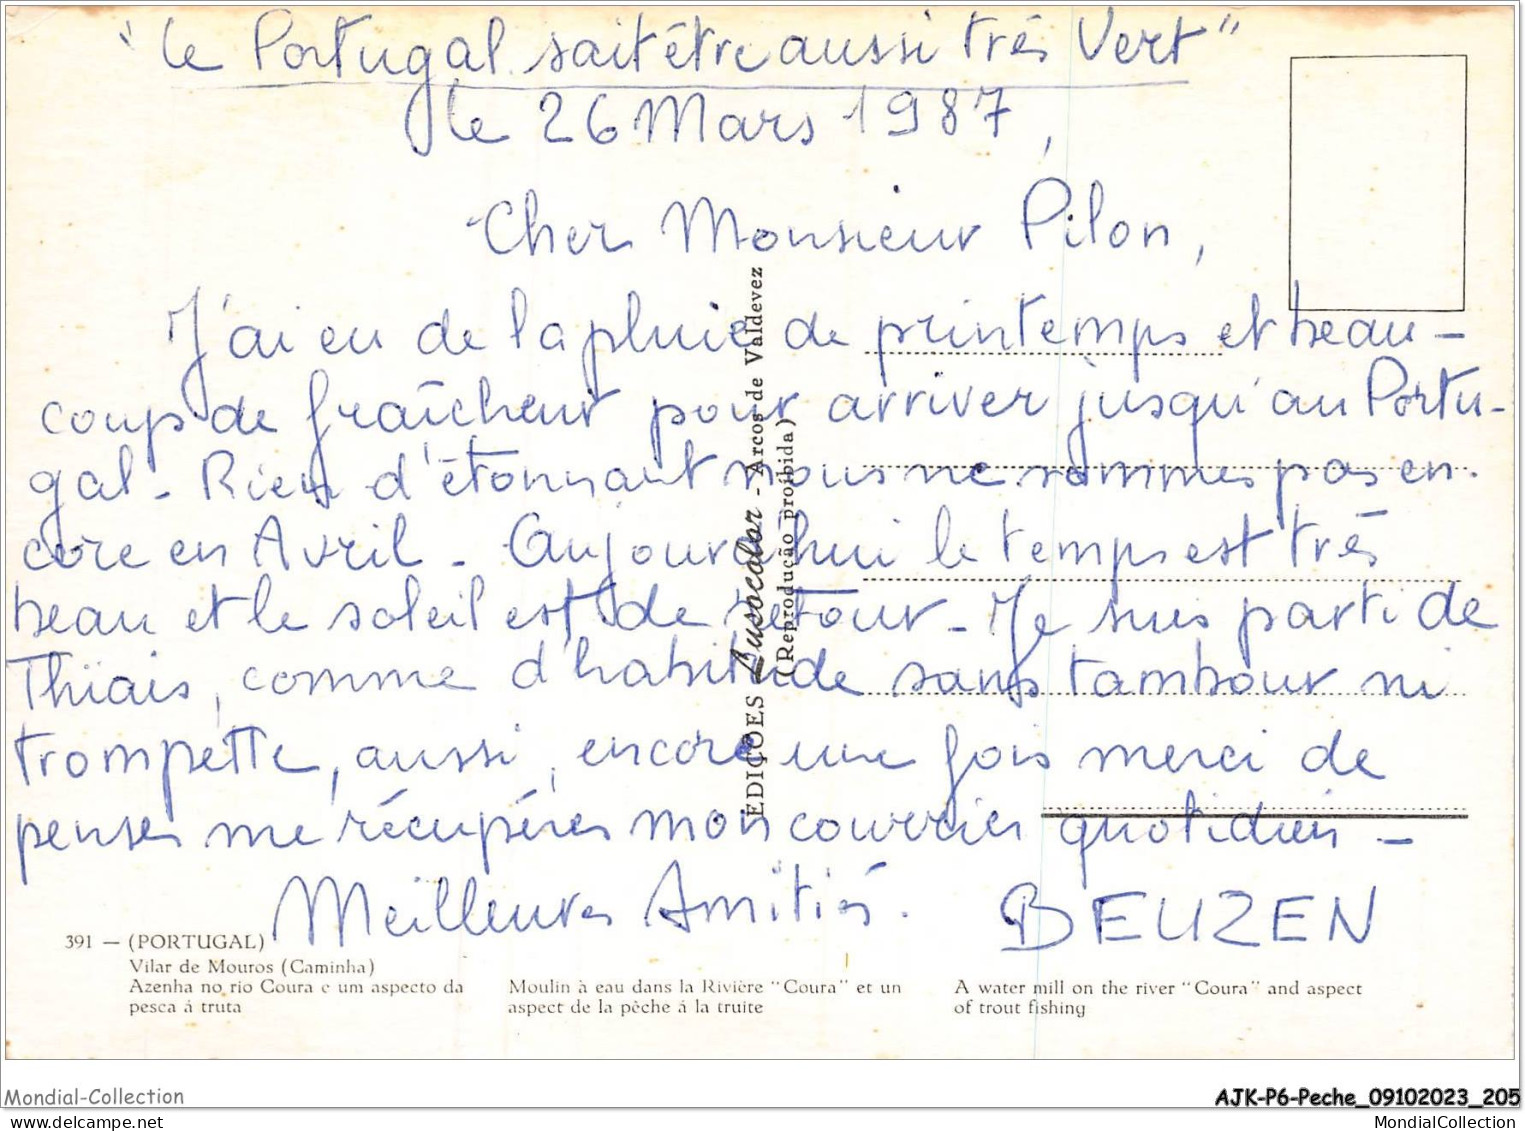 "Le Portugal sait être aussi très Vert"
le 26 Mars 1987,
Cher Monsieur Pilon,
J'ai eu de la pluie de printemps et beau-
coup de fraîcheur pour arriver jusqu'au Portu-
gal - Rien d'étonnant nous ne sommes pas en-
core en Avril - Aujourd'hui le temps est très
beau et le soleil est de retour - Je suis parti de
Thiais, comme d'habitude sans tambour ni
trompette, aussi, encore une fois merci de
penser me récupérer mon courrier quotidien -
Meilleures Amitiés. BEUZEN
EDIÇÕES Lusocolor - Arcos de Valdevez
(Reprodução proibida)
391 — (PORTUGAL)
Vilar de Mouros (Caminha)
Azenha no rio Coura e um aspecto da
pesca á truta
Moulin à eau dans la Rivière "Coura" et un
aspect de la pêche á la truite
A water mill on the river "Coura" and aspect
of trout fishing
Mondial-Collection
AJK-P6-Peche_09102023_205
mondial-collection.delcampe.net
MondialCollection